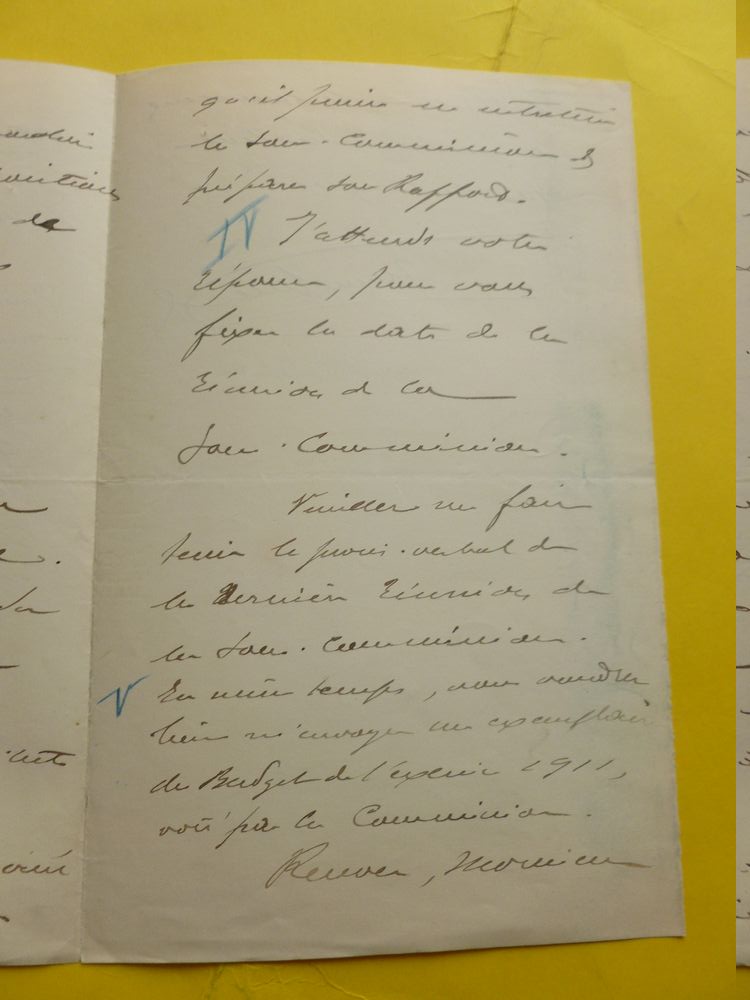 qu'il puisse en entretenir
la Sous-Commission et
préparer son Rapport.
IV J'attends votre
réponse, pour vous
fixer la date de la
réunion de la
Sous-Commission.
Veuillez me faire
tenir le procès-verbal de
la dernière réunion de
la Sous-Commission.
V En même temps, vous voudrez
bien m'envoyer un exemplaire
du Budget de l'exercice 1911,
voté par la Commission.
Recevez, Monsieur